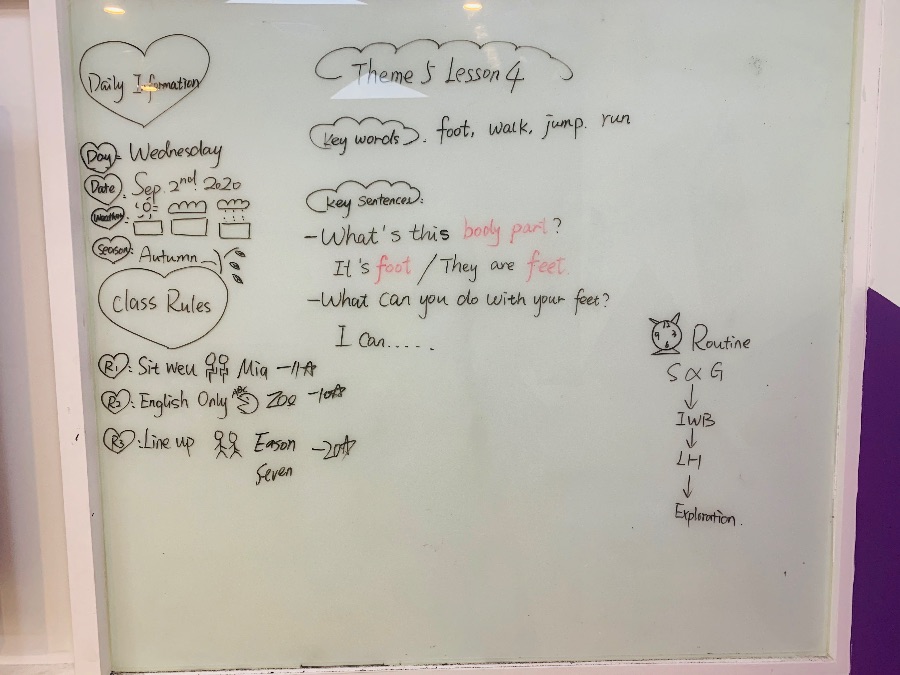 Daily Information
Day: Wednesday
Date: Sep. 2nd 2020
Weather:
Season: Autumn
Class Rules
R1: Sit well Mia -11☆
R2: English Only ABC Zoe -10☆
R3: Line up Eason -20☆
Seven
Theme 5 Lesson 4
Key words: foot, walk, jump. run
Key Sentences:
-What's this body part?
It's foot / They are feet.
-What can you do with your feet?
I can......
12 9 3 6
Routine
S & G
IWB
LH
Exploration.